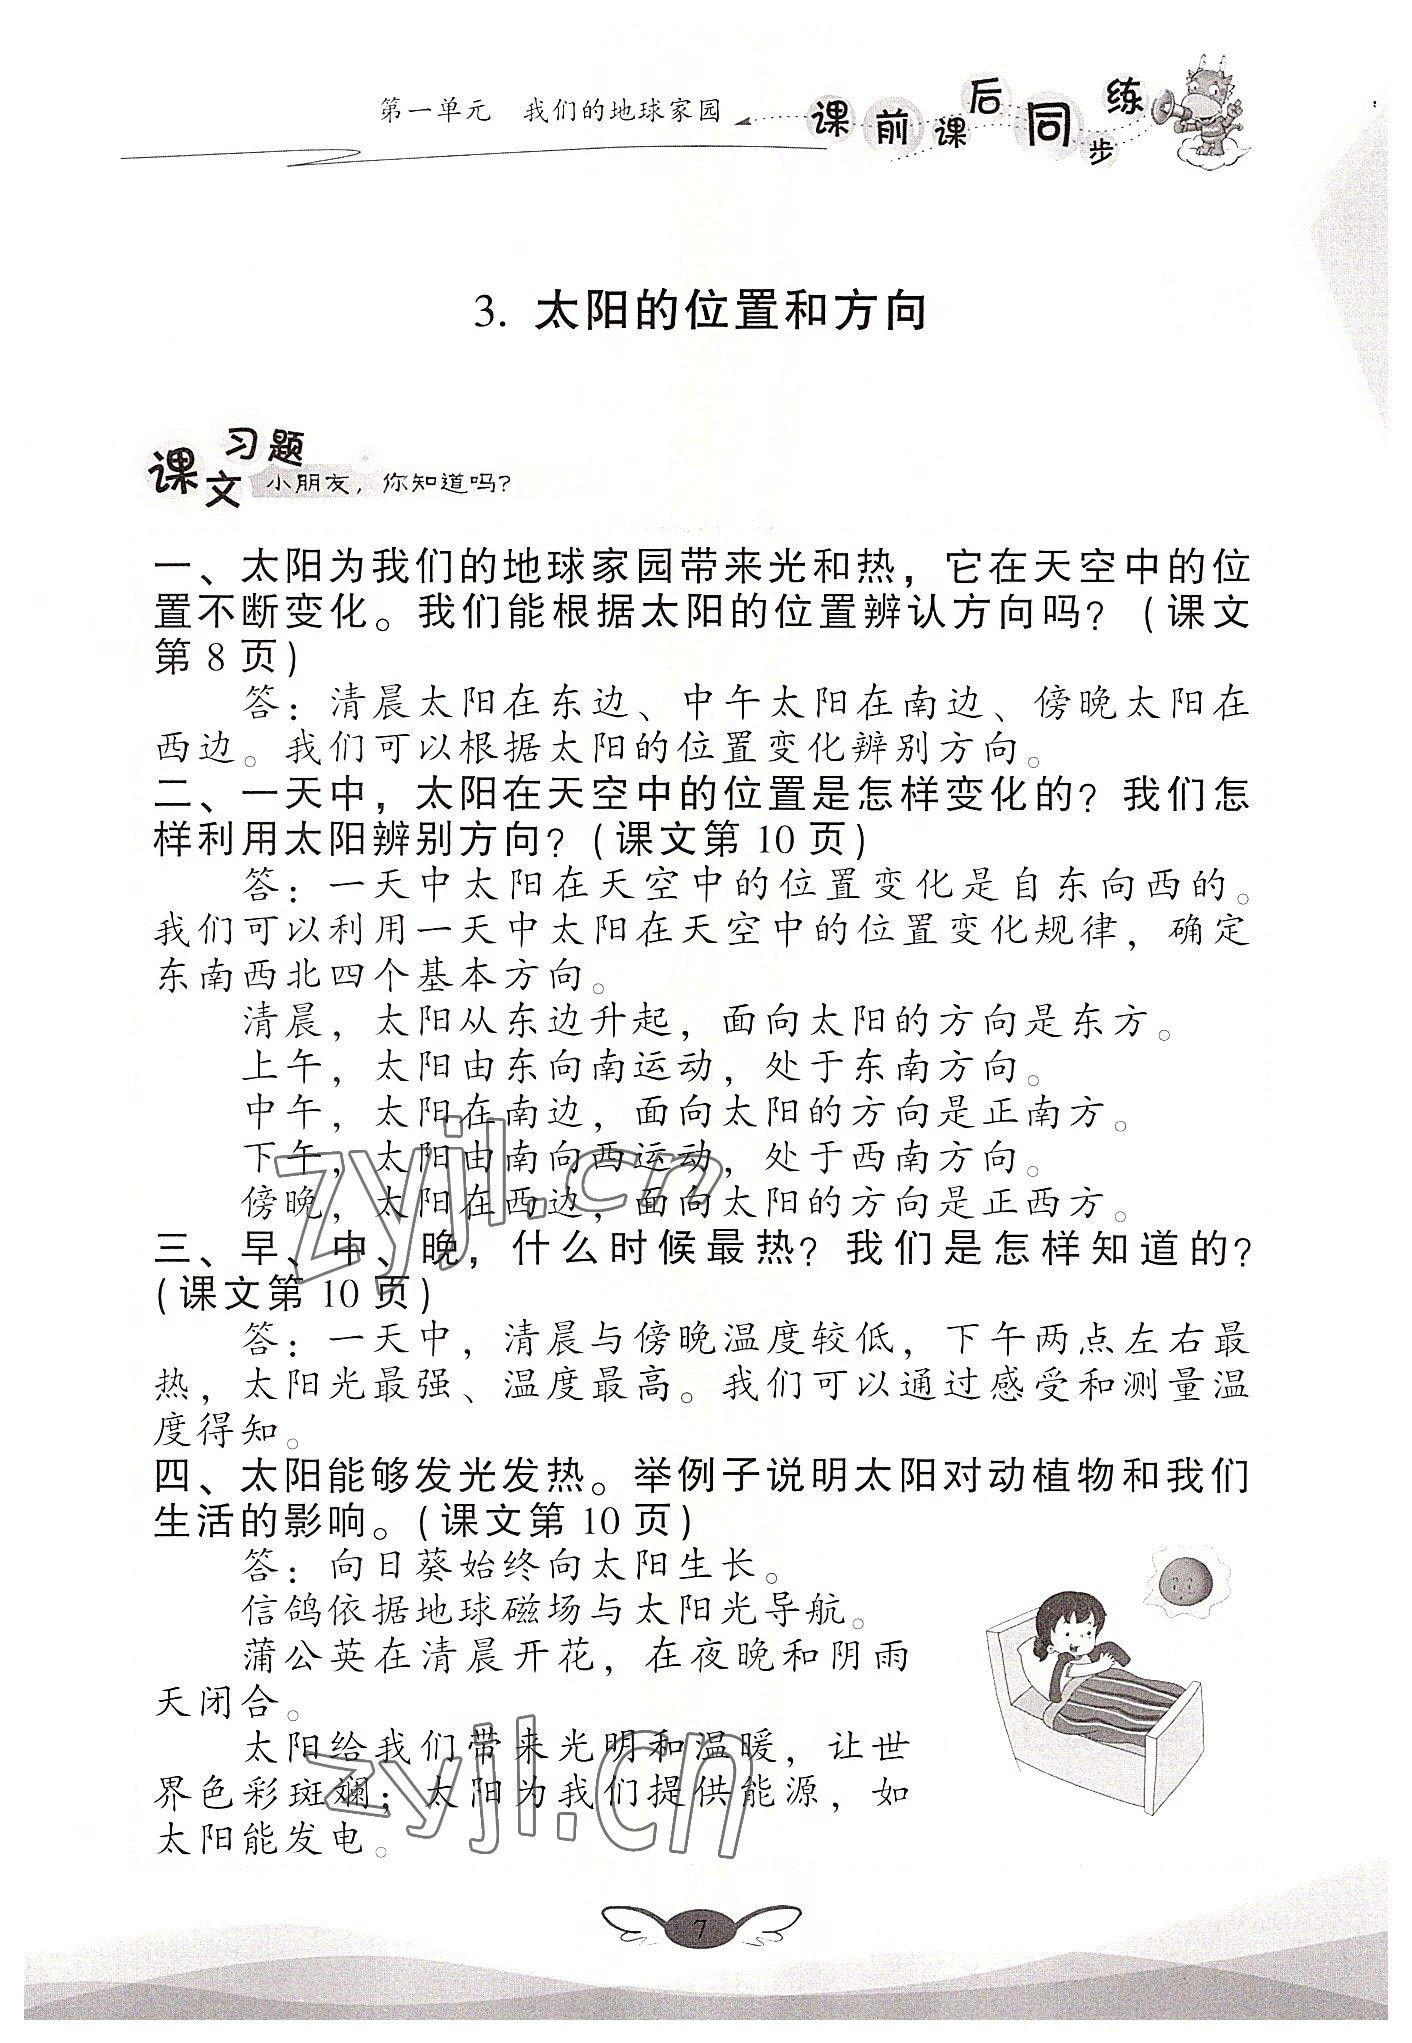 第一单元　我们的地球家园
课前课后同步练
3. 太阳的位置和方向
课文习题
小朋友，你知道吗？
一、太阳为我们的地球家园带来光和热，它在天空中的位
置不断变化。我们能根据太阳的位置辨认方向吗？（课文
第 8 页）
答：清晨太阳在东边、中午太阳在南边、傍晚太阳在
西边。我们可以根据太阳的位置变化辨别方向。
二、一天中，太阳在天空中的位置是怎样变化的？我们怎
样利用太阳辨别方向？（课文第 10 页）
答：一天中太阳在天空中的位置变化是自东向西的。
我们可以利用一天中太阳在天空中的位置变化规律，确定
东南西北四个基本方向。
清晨，太阳从东边升起，面向太阳的方向是东方。
上午，太阳由东向南运动，处于东南方向。
中午，太阳在南边，面向太阳的方向是正南方。
下午，太阳由南向西运动，处于西南方向。
傍晚，太阳在西边，面向太阳的方向是正西方。
三、早、中、晚，什么时候最热？我们是怎样知道的？
（课文第 10 页）
答：一天中，清晨与傍晚温度较低，下午两点左右最
热，太阳光最强、温度最高。我们可以通过感受和测量温
度得知。
四、太阳能够发光发热。举例子说明太阳对动植物和我们
生活的影响。（课文第 10 页）
答：向日葵始终向太阳生长。
信鸽依据地球磁场与太阳光导航。
蒲公英在清晨开花，在夜晚和阴雨
天闭合。
太阳给我们带来光明和温暖，让世
界色彩斑斓；太阳为我们提供能源，如
太阳能发电。
7
zyjl.cn
zyjl.cn